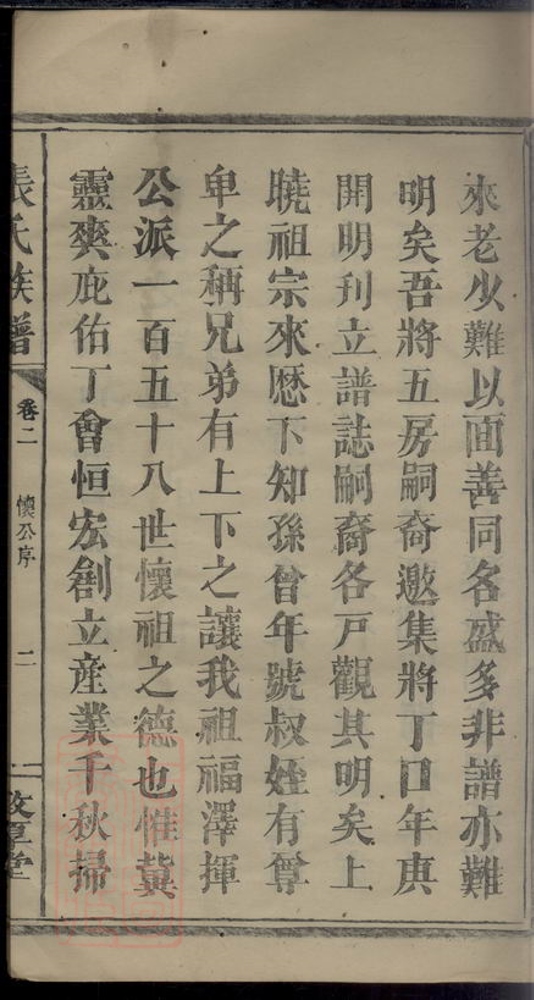 來老少難以面善同名盛多非譜亦難
明矣吾將五房嗣裔邀集將丁口年庚
開明刋立譜誌嗣裔各戸觀其明矣上
曉祖宗來歷下知孫曾年號叔姪有尊
卑之稱兄弟有上下之讓我祖福澤揮
公派一百五十八世懷祖之德也惟冀
靈爽庇佑丁會恒宏創立產業千秋掃
張氏族譜 卷二 懷公序 二 堂